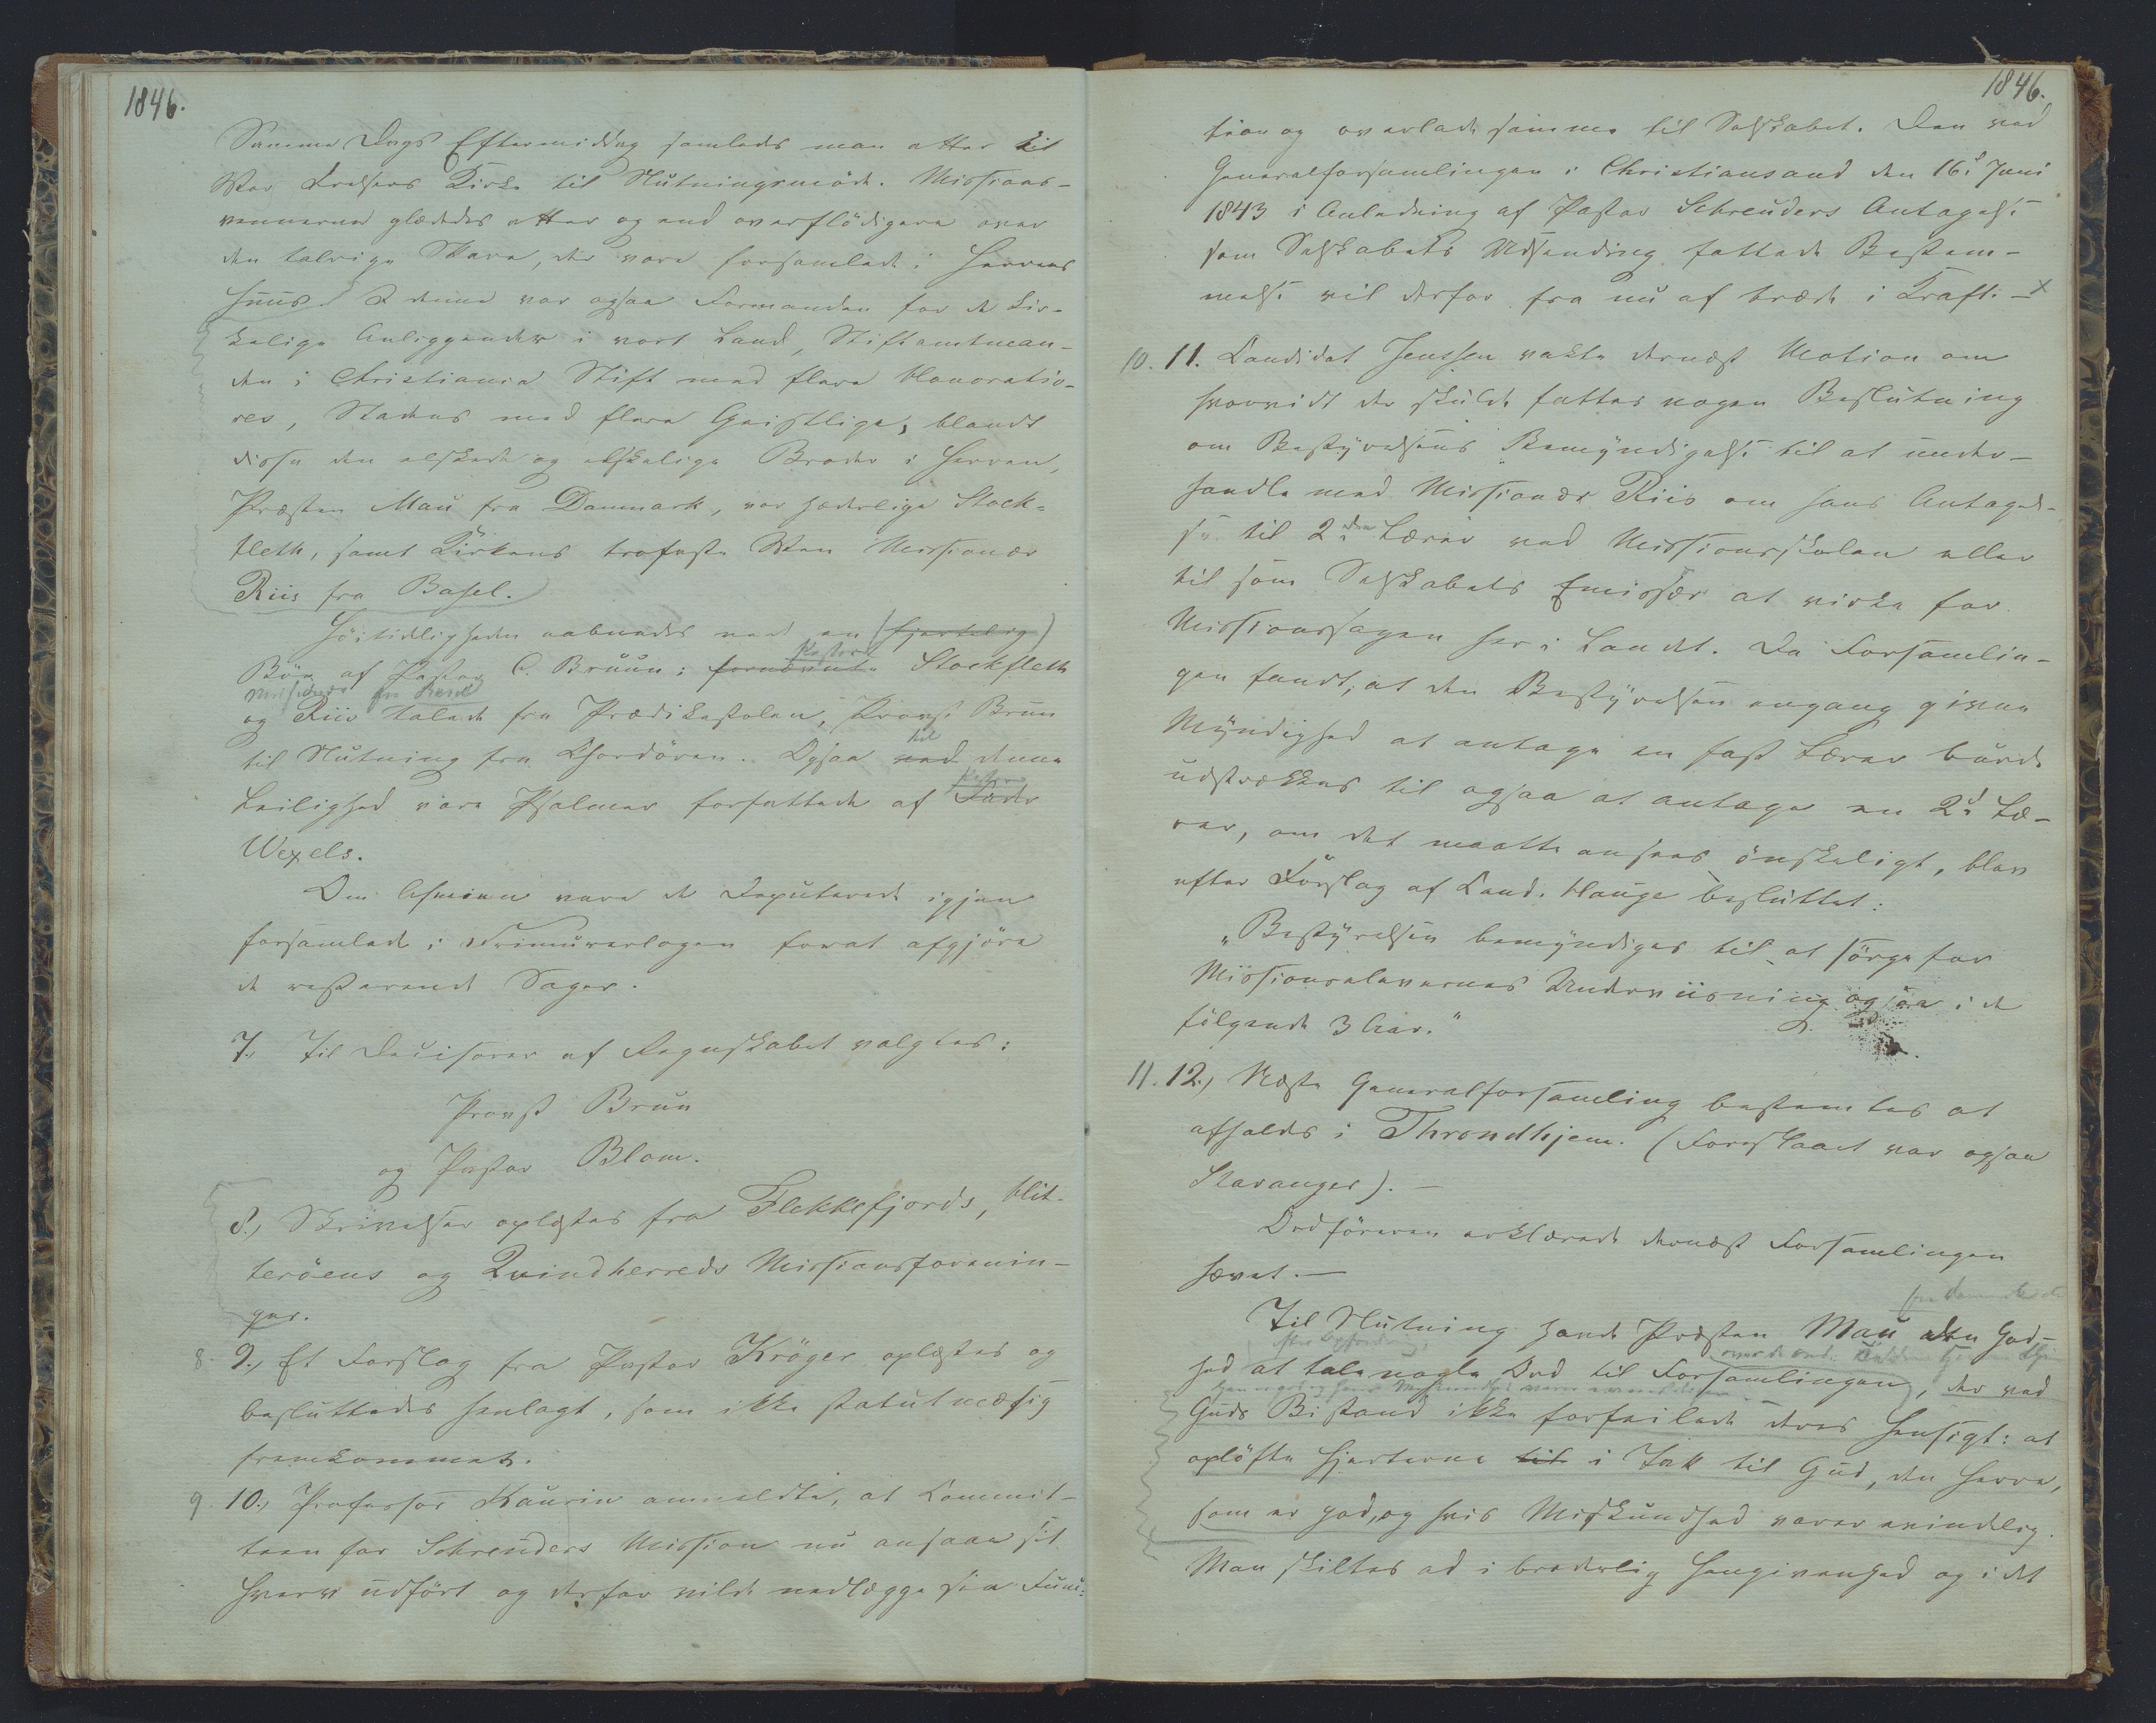 1846.
Samme Dags Eftermiddag samledes man atter til
Vor Frelsers Kirke til Slutningsmöde. Missions-
vennerne glædedes atter og end overflödigere over
den talrige Skare, der vare forsamlede i Herrens
Huus. I denne var ogsaa Formanden for de kir-
kelige Anliggender i vort Land, Stiftamtman-
den i Christiania Stift med flere Honoratio-
res, Stadens med flere Geistlige, blandt
disse den elskede og elskelige Broder i Herren,
Præsten Mau fra Danmark, vor hæderlige Stock-
fleth, samt Kirkens trofaste Ven Missionær
Riis fra Basel.
Höitideligheden aabnedes med en (hjertelig)
Bön af Pastor C. Bruun; fornævnte Pastor Stockfleth
og Missionær Riis fra Basel talede fra Prædikestolen, Provst Brun
til Slutning fra Chordören. Ogsaa ved til denne
Leilighed vare Psalmer forfattede af Fader Pastor
Wexels.
Om Aftenen vare de Deputerede igjen
forsamlede i Frimurerlogen forat afgjöre
de resterende Sager.
7., Til Decisorer af Regnskabet valgtes:
Provst Brun
og Pastor Blom.
8., Skrivelser oplæstes fra Flekkefjords, Hit-
teröens og Qvindherreds Missionsforenin-
ger.
8. 9., Et Forslag fra Pastor Kröger oplæstes og
besluttedes henlagt, som ikke statutmæsig
fremkommet.
9. 10., Professor Kaurin anmeldte, at Commit-
teen for Schreuders Mission nu ansaae sit
Hverv udfört og derfor vilde nedlægge sin Func-
1846.
tion og overlade samme til Selskabet. Den ved
Generalforsamlingen i Christiansand den 16d Juni
1843 i Anledning af Pastor Schreuders Antagelse
som Selskabets Udsending fattede Bestem-
melse vil derfor fra nu af træde i Kraft. — x
10. 11. Candidat Jenssen vakte dernæst Motion om
hvorvidt der skulde fattes nogen Beslutning
om Bestyrelsens Bemyndigelse til at under-
handle med Missionær Riis om hans Antagel-
se til 2den Lærer ved Missionsskolen eller
til som Selskabets Emissær at virke for
Missionssagen her i Landet. Da Forsamlin-
gen fandt, at den Bestyrelsen engang givne
Myndighed at antage en fast Lærer burde
udstrækkes til ogsaa at antage en 2d Læ-
rer, om det maatte ansees önskeligt, blev
efter Forslag af Cand. Hauge besluttet:
„Bestyrelsen bemyndiges til at sörge for
Missionselevernes Underviisning ogsaa i de
fölgende 3 Aar."
11. 12., Næste Generalforsamling bestemtes at
afholdes i Throndhjem. (Foreslaaet var ogsaa
Stavanger). —
Ordföreren erklærede dernæst Forsamlingen
hævet. —
Til Slutning havde Præsten Mau den God-
hed at tale nogle Ord til Forsamlingen, der ved
Guds Bistand ikke forfeilede deres Hensigt: at
oplöfte Hjerterne til i Tak til Gud, den Herre,
som er god, og hvis Miskundhed varer evindelig.
Man skiltes ad i broderlig Hengivenhed og i det